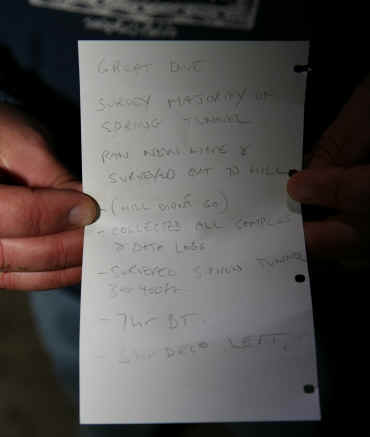 GREAT DIVE
SURVEY MAJORITY OF
SPRING TUNNEL
RAN NEW LINE &
SURVEYED OUT TO HILL
- (HILL DIDN'T GO)
- COLLECTED ALL SAMPLES
& DATA LOGS
- SURVEYED SPRING TUNNEL
- 7hr BT.
- DECO LEFT.